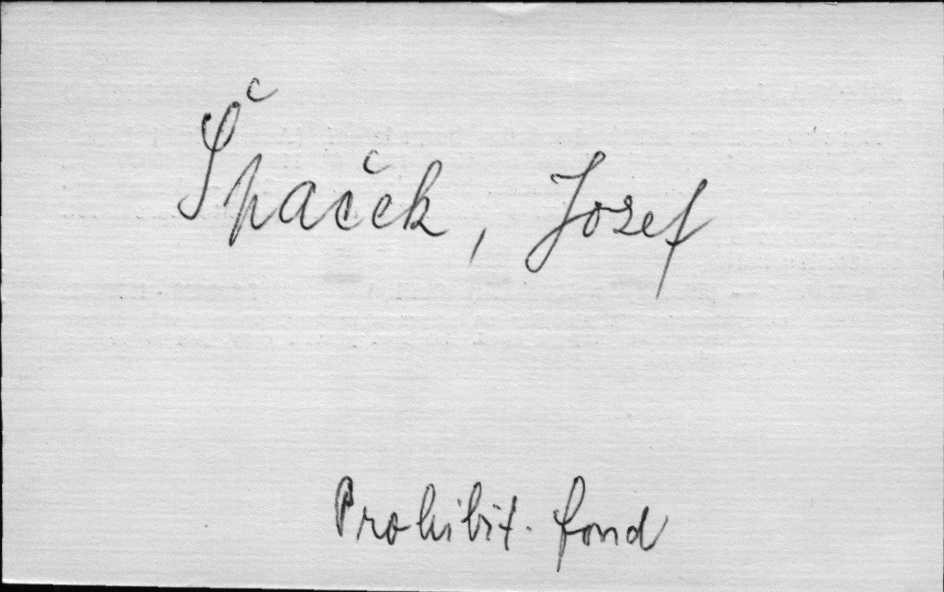 Špaček, Josef
Prohibit. fond